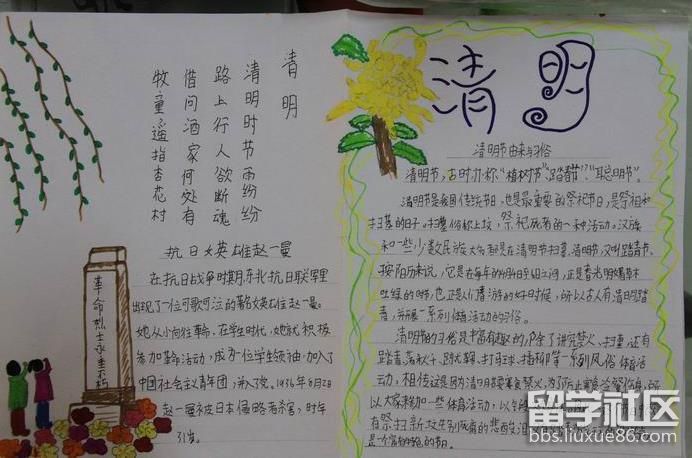 清明
清明时节雨纷纷
路上行人欲断魂
借问酒家何处有
牧童遥指杏花村
抗日女英雄赵一曼
在抗日战争时期,东北抗日联军里
出现了一位可歌可泣的著名女英雄赵一曼。
她从小向往革命,在学生时代,她就积极
参加革命活动,成为一位学生领袖,加入了
中国社会主义青年团,并入党。1936年8月2日
赵一曼被日本侵略者杀害,时年
31岁。
革命烈士永垂不朽
清明
清明节由来与习俗
清明节,古时也称"植树节""踏青节""聪明节"。
清明节是我国传统节日,也是最重要的祭祀节日,是祭祖和
扫墓的日子。扫墓俗称上坟,祭祀死者的一种活动。汉族
和一些少数民族大多都是在清明节扫墓。清明节,又叫踏青节,
按阳历来说,它是在每年的4月4日至6日之间,正是春光明媚草木
吐绿的时节,也正是人们春游的好时候,所以古人有清明踏
青,并开展一系列体育活动的习俗。
清明节的习俗是丰富有趣的,除了讲究禁火、扫墓,还有
踏青、荡秋千、蹴鞠、打马球、插柳等一系列风俗体育活
动,相传这是因为清明节要寒食禁火,为了防止寒食冷餐伤身,所
以大家来参加一些体育活动,以
有祭扫新坟生别死离的悲酸泪
是个富有特色的节日。
留学社区
bbs.liuxue86.com